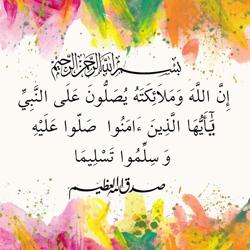 بسم الله الرحمن الرحيم
إِنَّ اللَّهَ وَمَلَائِكَتَهُ يُصَلُّونَ عَلَى النَّبِيِّ
يَٰٓأَيُّهَا الَّذِينَ ءَامَنُوا صَلُّوا عَلَيْهِ
وَ سَلِّمُوا تَسْلِيمًا
صدق الله العظيم